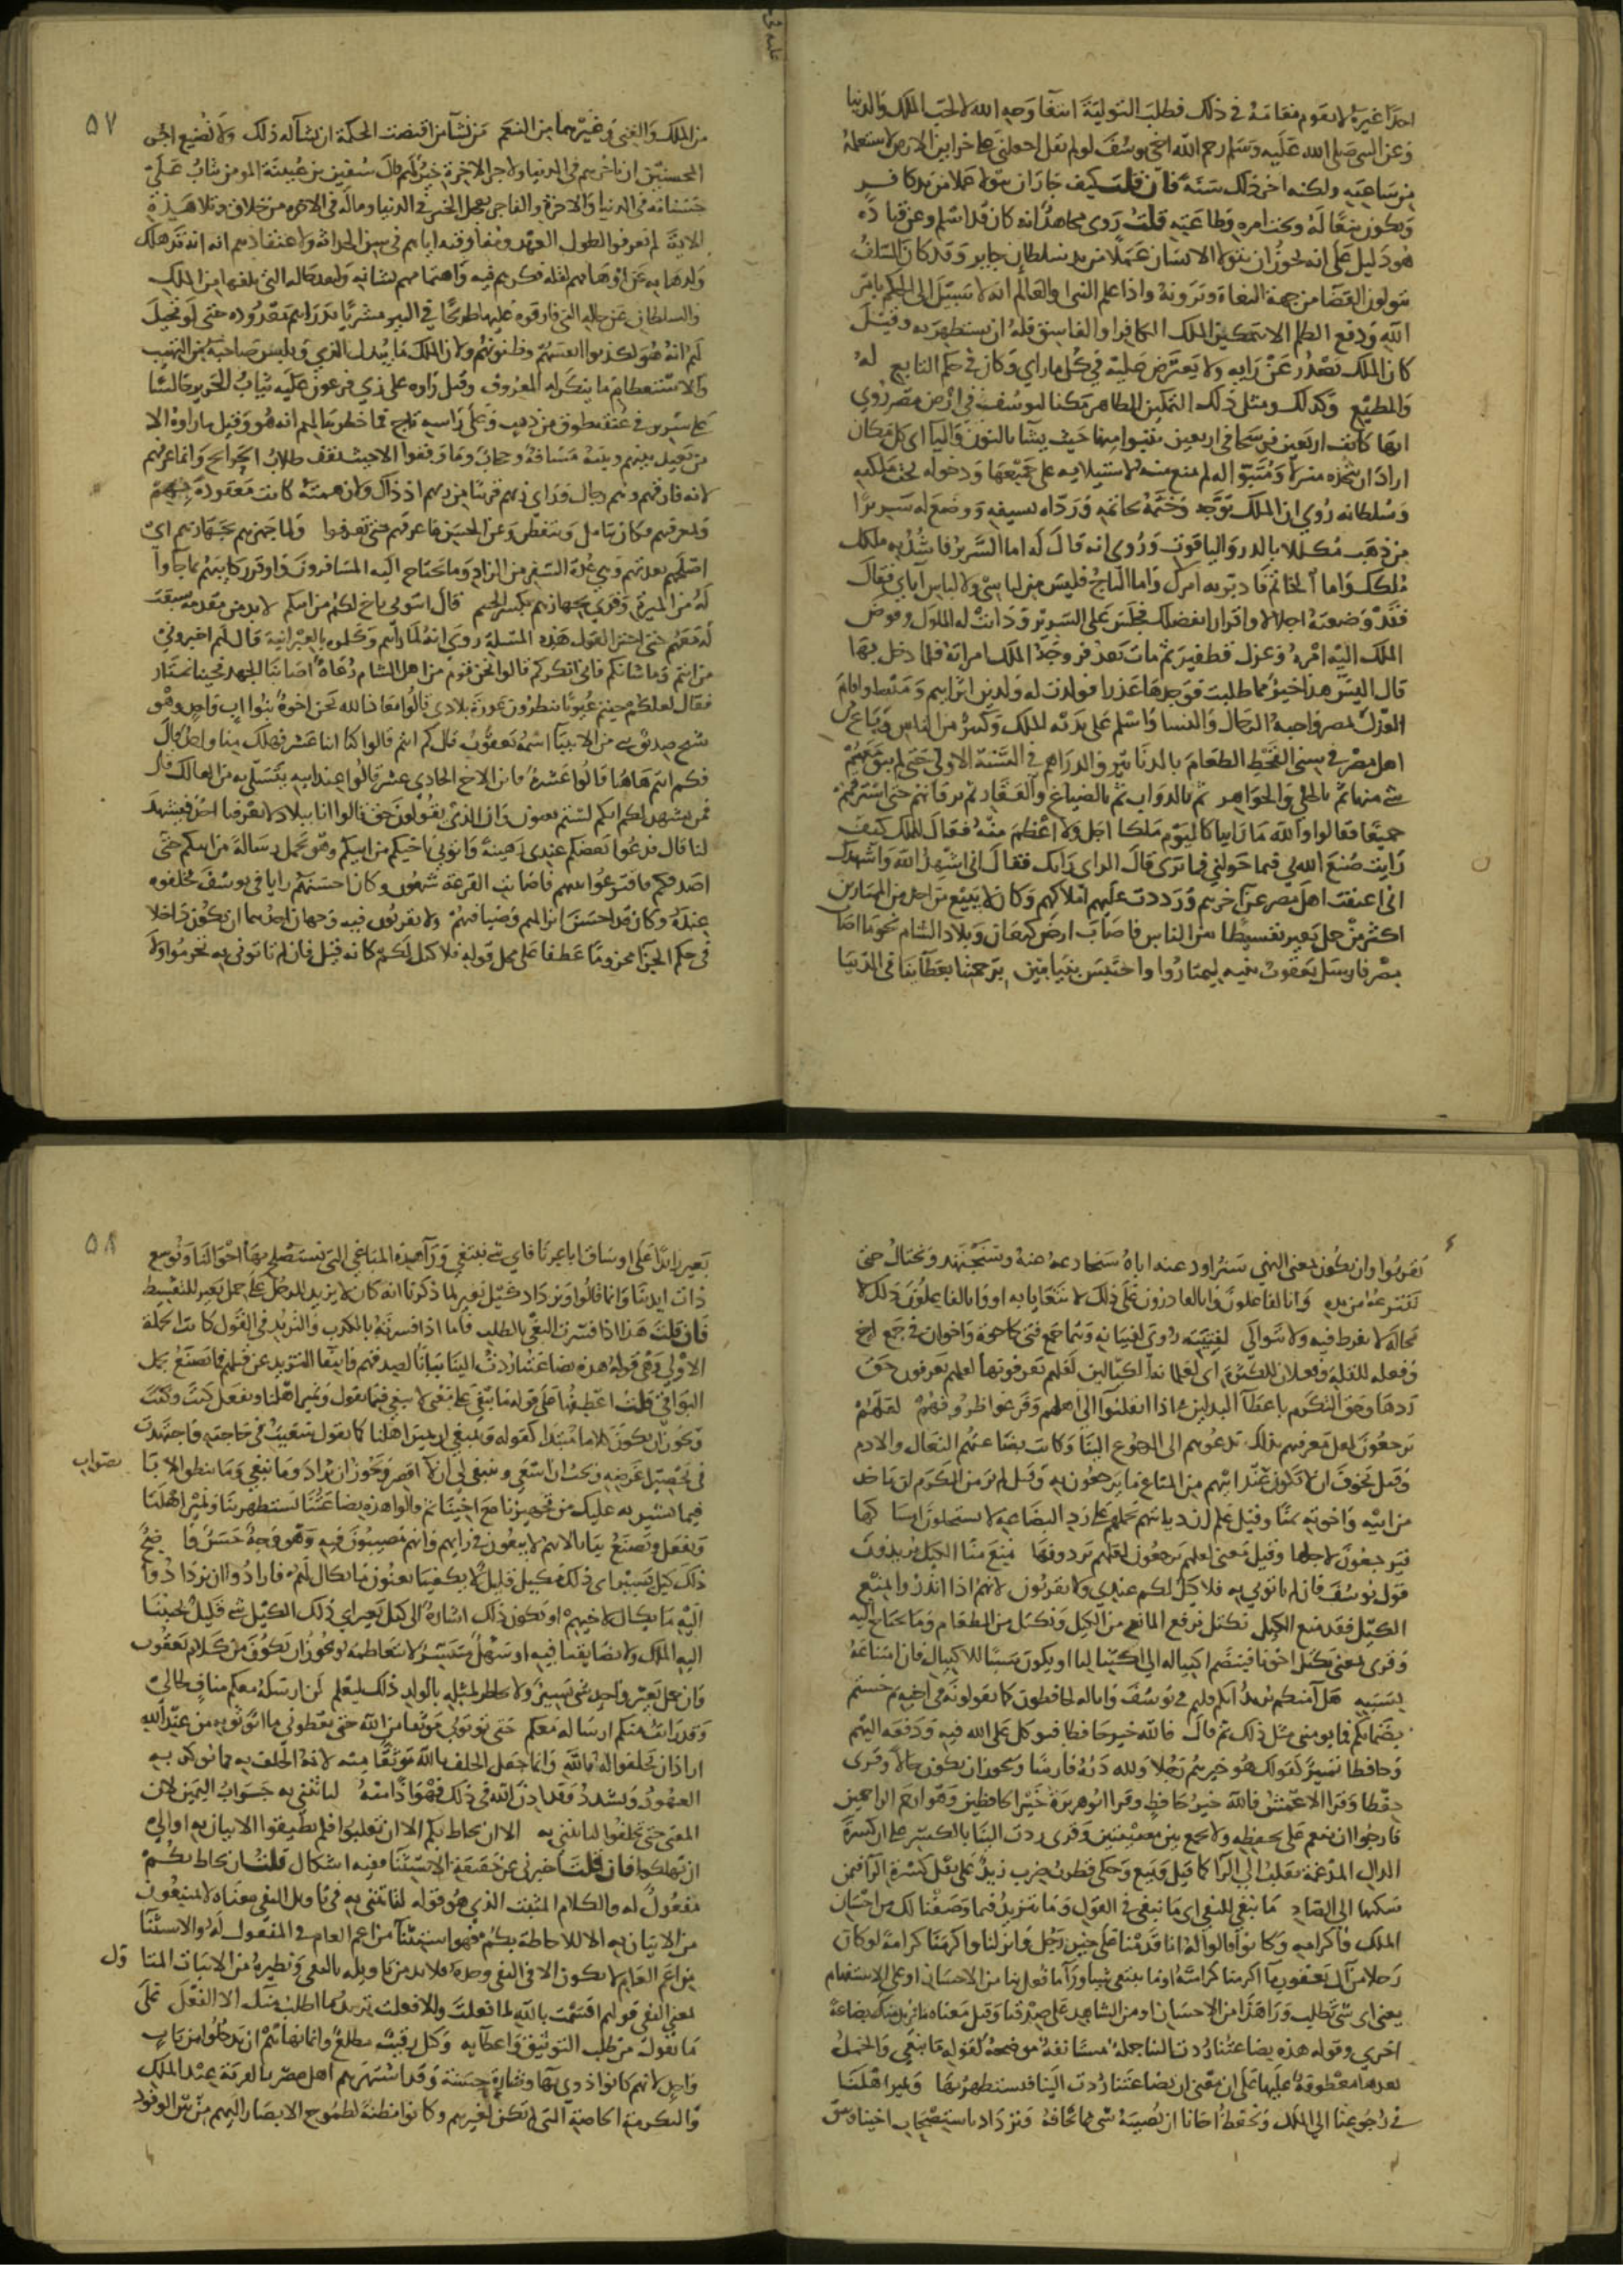 احدا غيره لا يقوم مقامه في ذلك فطلب التولية ابتغا وجه الله لا لحب الملك والدنيا
وعن النبي صلى الله عليه وسلم رحم الله اخي يوسف لو لم يقل اجعلني على خزاين الارض لاستعمله
من ساعته ولكنه اخر ذلك سنة فان قلت كيف جاز ان يتولى عملا من يد كافر
ويكون تبعا له وتحت امره وطاعته قلت روى مجاهد انه كان قد اسلم وعن قتادة
هو دليل على انه يجوز ان يتولى الانسان عملا من يد سلطان جاير وقد كان السلف
يتولون القضا من جهة البغاة ويرونه واذا علم النبي او العالم انه لا سبيل الى الحكم بامر
الله ودفع الظلم الا بتمكين الملك الكافر او الفاسق فله ان يستظهر به وقيل
كان الملك يصدر عن رايه ولا يعترض عليه في كل ما راى وكان في حكم التابع له
والمطيع وكذلك ومثل ذلك التمكين الظاهر مكنا ليوسف في ارض مصر روي
انها كانت اربعين فرسخا في اربعين يتبوا منها حيث يشا بالنون واليا اي كل مكان
اراد ان يتخذه منزلا ومتبوا له لم يمنع منه لاستيلايه على جميعها ودخوله تحت ملكته
وسلطانه روي ان الملك توجه وختمه بخاتمه ورداه بسيفه ووضع له سريرا
من ذهب مكللا بالدر والياقوت وروي انه قال له اما السرير فاشد به ملكك
ملكك واما الخاتم فادبر به امرك واما التاج فليس من لباسي ولا لباس اباي فقال
فقد وضعته اجلالا واقرارا بفضلك فجلس على السرير ودانت له الملوك وفوض
الملك اليه امره وعزل قطفير ثم مات بعد فزوجه الملك امراته فلما دخل بها
قال اليس هذا خيرا مما طلبت فوجدها عذرا فولدت له ولدين افراييم وميشا واقام
العدل بمصر واحبه الرجال والنسا واسلم على يديه الملك وكثير من الناس وباع من
اهل مصر في سني القحط الطعام بالدنانير والدراهم في السنة الاولى حتى لم يبق معهم
شي منها ثم بالحلي والجواهر ثم بالدواب ثم بالضياع والعقار ثم برقابهم حتى استرقهم
جميعا فقالوا والله ما راينا كاليوم ملكا اجل ولا اعظم منه فقال للملك كيف
رايت صنع الله بي فيما خولني فما ترى قال الراي رايك فقال اني اشهد الله واشهدك
اني اعتقت اهل مصر عن اخرهم ورددت عليهم املاكهم وكان لا يبيع من احد من الممتارين
اكثر من حمل بعير تقسيطا بين الناس فاصاب ارض كنعان وبلاد الشام نحو ما اصاب
مصر فارسل يعقوب بنيه ليمتاروا واحتبس بنيامين برحمتنا بعطاينا في الدنيا
٥٧
من الملك والغنى وغيرهما من النعم من نشا من اقتضت الحكمة ان نشا له ذلك ولا نضيع اجر
المحسنين ان ناجرهم في الدنيا ولاجر الاخرة خير لهم قال سفين بن عيينة المومن يثاب على
حسناته في الدنيا والاخرة والفاجر يعجل الخير في الدنيا وما له في الاخرة من خلاق وتلا هذه
الاية لم يعرفوا لطول العهد ومفارقته اياهم في سن الحداثة ولاعتقادهم انه قد هلك
ولذهابه عن اوهامهم لقلة فكرهم فيه واهتمامهم بشانه ولبعد حاله التي بلغها من الملك
والسلطان عن حاله التي فارقوه عليها طريحا في البير مشريا بدراهم معدودة حتى لو تخيل
لهم انه هو لكذبوا انفسهم وظنونهم ولان الملك مما يبدل الزي ويلبس صاحبه من التهيب
والاستعظام ما ينكر له المعروف وقيل راوه على زي فرعون عليه ثياب الحرير جالسا
على سرير في عنقه طوق من ذهب وعلى راسه تاج فما خطر ببالهم انه هو وقيل ما راوه الا
من بعيد بينهم وبينه مسافة وحجاب وما وقفوا الا حيث يقف طلاب الحوايج وانما عرفهم
لانه فارقهم وهم رجال وراى زيهم قريبا من زيهم اذ ذاك ولان همته كانت معقودة بهم
وبمعرفتهم فكان يتامل ويتفطن وعن الحسن ما عرفهم حتى تعرفوا ولما جهزهم بجهازهم اي
اصلحهم بعدتهم وهي عدة السفر من الزاد وما يحتاج اليه المسافرون واوقر ركايبهم بما جاوا
له من الميرة وقري بجهازهم بكسر الجيم قال ايتوني باخ لكم من ابيكم لا بد من مقدمة سبقت
له معهم حتى اجتر القول هذه المسئلة روي انه لما راهم وكلموه بالعبرانية قال لهم اخبروني
من انتم وما شانكم فاني انكركم قالوا نحن قوم من اهل الشام رعاة اصابنا الجهد فجينا نمتار
فقال لعلكم جيتم عيونا تنظرون عورة بلادي قالوا معاذ الله نحن اخوة بنوا اب واحد وهو
شيخ صديق نبي من الانبيا اسمه يعقوب قال كم انتم قالوا كنا اثنا عشر فهلك منا واحد قال
فكم انتم هاهنا قالوا عشرة قال فاين الاخ الحادي عشر قالوا عند ابيه يتسلى به من الهالك قال
فمن يشهد لكم انكم لستم بعيون وان الذي تقولون حق قالوا انا ببلاد لا يعرفنا احد فيشهد
لنا قال فدعوا بعضكم عندي رهينة وايتوني باخيكم من ابيكم وهو يحمل رسالة من ابيكم حتى
اصدقكم فاقترعوا بينهم فاصابت القرعة شمعون وكان احسنهم رايا في يوسف فخلفوه
عنده وكان قد احسن انزالهم وضيافتهم ولا تقربون فيه وجهان احدهما ان يكون داخلا
في حكم الجزا مجزوما عطفا على محل قوله فلا كيل لكم كانه قيل فان لم تاتوني به تحرموا ولا
تقربوا وان يكون بمعنى النهي سنراود عنه اباه سنخادعه عنه وسنجتهد ونحتال حتى
ننتزعه من يده وانا لفاعلون وانا لقادرون على ذلك لا نتعايا به او وانا لفاعلون ذلك لا
محالة لا نفرط فيه ولا نتوانى لفتيته وقري لفتيانه وهما جمع فتى كاخوة واخوان في جمع اخ
وفعلة للقلة وفعلان للكثرة اي لغلمانه الكيالين لعلهم يعرفونها لعلهم يعرفون حق
ردها وحق التكرم باعطا البدلين اذا انقلبوا الى اهلهم وفرغوا ظروفهم لعلهم
يرجعون لعل معرفتهم بذلك تدعوهم الى الرجوع الينا وكانت بضاعتهم النعال والادم
وقيل تخوف ان لا يكون عند ابيهم من المتاع ما يرجعون به وقيل لم ير من الكرم ان ياخذ
من ابيه واخوته ثمنا وقيل علم ان ديانتهم تحملهم على رد البضاعة لا يستحلون امساكها
فيرجعون لاجلها وقيل معنى لعلهم يرجعون لعلهم يردونها منع منا الكيل يريدون
قول يوسف فان لم تاتوني به فلا كيل لكم عندي ولا تقربون لانهم اذا انذروا بمنع
الكيل فقد منع الكيل نكتل نرفع المانع من الكيل ونكتل من الطعام وما نحتاج اليه
وقرى يكتل بمعنى يكتل اخونا فينضم اكتياله الى اكتيالنا او يكون سببا للاكتيال فان امتناعه
بسببه هل آمنكم يريد انكم قلتم في يوسف وانا له لحافظون كما تقولونه في اخيه ثم خنتم
بضمانكم فما يومنني من مثل ذلك ثم قال فالله خير حافظا فتوكل على الله فيه ودفعه اليهم
وحافظا تمييز كقولك هو خيرهم رجلا ولله دره فارسا ويجوز ان يكون حالا وقرى
حفظا وقرا الاعمش فالله خير حافظ وقرا ابو هريرة خير الحافظين وهو ارحم الراحمين
فارجوا ان ينعم علي بحفظه ولا يجمع بين مصيبتين وقرى ردت الينا بالكسر على ان كسرة
الدال المدغمة نقلت الى الرا كما في قيل وبيع وحكى قطرب ضرب زيد على نقل كسرة الرا فيمن
سكنها الى الضاد ما نبغي للنفي اي ما نبغي في القول وما نتزيد فيما وصفنا لك من احسان
الملك واكرامه وكانوا قالوا له انا قدمنا على خير رجل وانزلنا واكرمنا كرامة لو كان
رجلا من ال يعقوب ما اكرمنا كرامته او ما نبتغي شيا ورا ما فعل بنا من الاحسان او على الاستفهام
بمعنى اي شي نطلب ورا هذا من الاحسان او من الشاهد على صدقنا وقيل معناه ما نريد منك بضاعة
اخرى وقوله هذه بضاعتنا ردت الينا جملة مستانفة موضحة لقوله ما نبغي والجمل
بعدها معطوفة عليها على ان معنى ان بضاعتنا ردت الينا فنستظهر بها ونمير اهلنا
في رجوعنا الى الملك ونحفظ اخانا ان نصيبه شي مما تخافه ونزداد باستصحاب اخينا وسق
٥٨
بعير زايدا على اوساق اباعرنا فاي شي نبتغي ورا هذه المباغي التي نستصلح بها احوالنا ونوسع
ذات ايدينا وانما قالوا ونزداد كيل بعير لما ذكرنا انه كان لا يزيد للرجل على حمل بعير للتقسيط
فان قلت هذا اذا فسرت البغي بالطلب فاما اذا فسرته بالكذب والتزيد في القول كانت الجملة
الاولى وهي قوله هذه بضاعتنا ردت الينا بيانا لصدقهم وانتفا التزيد عن قيلهم فما تصنع بجمل
البواقي قلت اعطفها على قوله ما نبغي على معنى لا نبغي فيما نقول ونمير اهلنا ونفعل كيت وكيت
ويجوز ان يكون كلاما مبتدا كقوله وينبغي ان نمير اهلنا كما نقول سعيت في حاجته واجتهدت
في تحصيل غرضه ويجب ان اسعى وينبغي لي ان لا اقصر ويجوز ان يراد وما نبغي وما ننطق الا
بالصواب
فيما نشير به عليك من تجهيزنا مع اخينا ثم قالوا هذه بضاعتنا نستظهر بها ونمير اهلنا
ونفعل ونصنع بيانا لانهم لا يبغون في رايهم وانهم مصيبون فيه وهو وجه حسن واضح
ذلك كيل يسير اي ذلك مكيل قليل لا يكفينا يعنون ما يكال لهم فارادوا ان يزدادوا
اليه ما يكال لاخيهم او يكون ذلك اشارة الى كيل بعير اي ذلك الكيل شي قليل يجيبنا
اليه الملك ولا يضايقنا فيه او سهل متيسر لا يتعاظمه ويجوز ان يكون من كلام يعقوب
وان حمل بعير واحد شي يسير ولا يخاطر لمثله بالولد ذلك ليعلم لن ارسله معكم مناف لحالي
وقد رايت منكم ارساله معكم حتى توتون موثقا من الله حتى تعطوني ما اتوثق به من عند الله
اراد ان يحلفوا له بالله وانما جعل الحلف بالله موثقا منه لان الحلف به مما توكد به
العهود وتشدد وقد اذن الله في ذلك فهو اذن منه لتاتنني به جواب اليمين لان
المعنى حتى تحلفوا لتاتنني به الا ان يحاط بكم الا ان تغلبوا فلم تطيقوا الاتيان به او الا
ان تهلكوا فان قلت اخبرني عن حقيقة الاستثنا ففيه اشكال قلت ان يحاط بكم
مفعول له والكلام المثبت الذي هو قوله لتاتنني به في تاويل النفي معناه لا تمتنعون
من الاتيان به الا للاحاطة بكم فهو استثنا من اعم العام في المفعول له والاستثنا
من اعم العام لا يكون الا في النفي وحده فلا بد من تاويله بالنفي ونظيره من الاثبات المتاول
بمعنى النفي قولهم اقسمت بالله لما فعلت والا فعلت تريد ما اطلب منك الا الفعل على
ما نقول من طلب التوثيق واعطايه وكيل رقيب مطلع وانما نهاهم ان يدخلوا من باب
واحد لانهم كانوا ذوي بها وشارة حسنة وقد اشتهرهم اهل مصر بالقربة عند الملك
والتكرمة الخاصة التي لم تكن لغيرهم وكانوا مظنة لطموح الابصار اليهم من بين الوفود